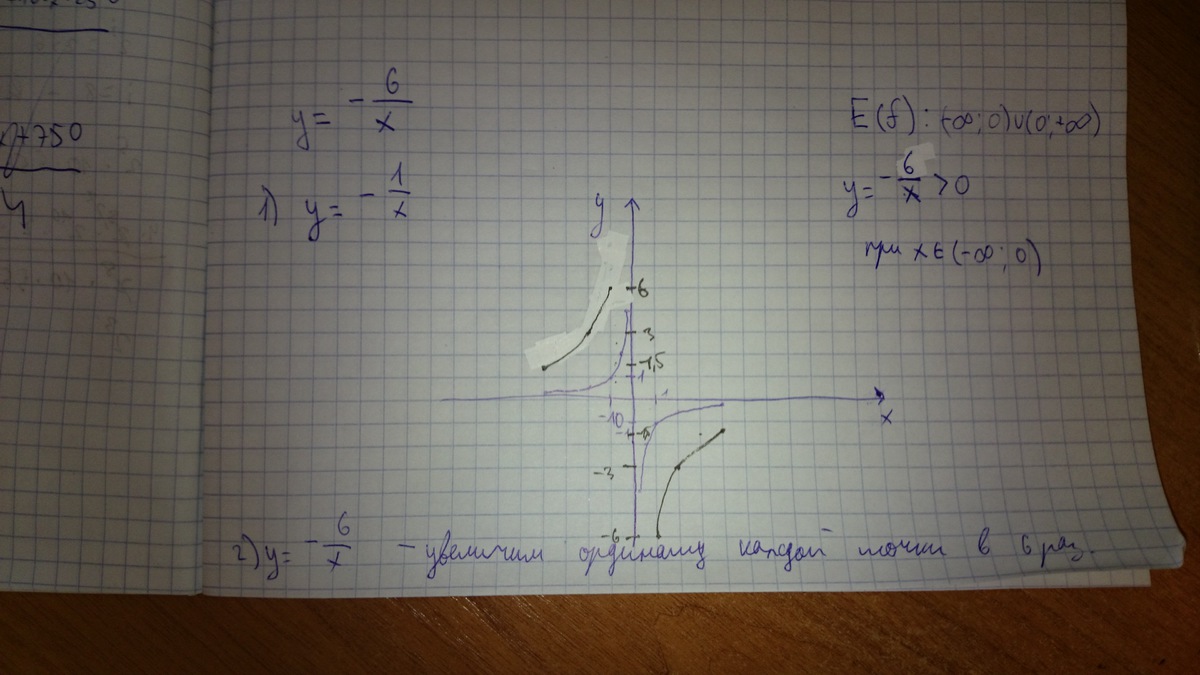 +750
4
y = -6/x
1) y = -1/x
E(f): (-∞; 0)∪(0; +∞)
y = -6/x > 0
при x ∈ (-∞; 0)
y
6
3
1,5
1
-1 0 1
x
-3
-6
2) y = -6/x - увеличим ординату каждой точки в 6 раз.